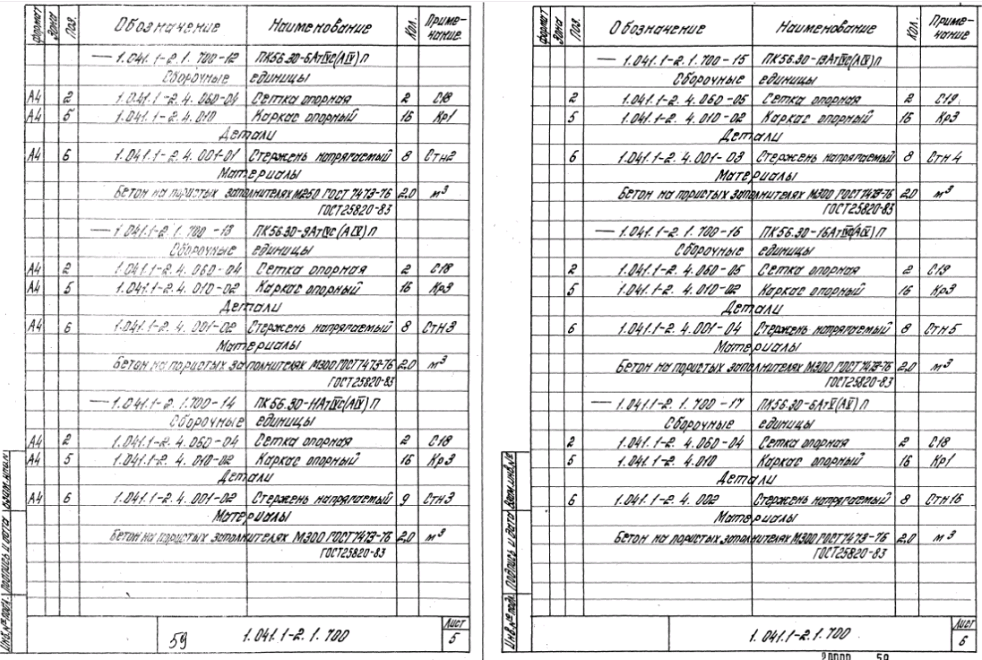 Формат Зона Поз. Обозначение Наименование Кол. Приме-
чание
— 1.041.1-2.1.700-12 ПК56.30-6АтIVС(АIV)П
Сборочные единицы
А4 2 1.041.1-2.4.060-04 Сетка опорная 2 С18
А4 5 1.041.1-2.4.010 Каркас опорный 16 Кр1
Детали
А4 6 1.041.1-2.4.001-01 Стержень напрягаемый 8 Стн2
Материалы
Бетон на пористых заполнителях М250 ГОСТ 7473-76 2.0 м³
ГОСТ25820-83
— 1.041.1-2.1.700-13 ПК56.30-9АтIVС(АIV)П
Сборочные единицы
А4 2 1.041.1-2.4.060-04 Сетка опорная 2 С18
А4 5 1.041.1-2.4.010-02 Каркас опорный 16 Кр3
Детали
А4 6 1.041.1-2.4.001-02 Стержень напрягаемый 8 Стн3
Материалы
Бетон на пористых заполнителях М300 ГОСТ7473-76 2.0 м³
ГОСТ25820-83
— 1.041.1-2.1.700-14 ПК56.30-11АтIVС(АIV)П
Сборочные единицы
А4 2 1.041.1-2.4.060-04 Сетка опорная 2 С18
А4 5 1.041.1-2.4.010-02 Каркас опорный 16 Кр3
Детали
А4 6 1.041.1-2.4.001-02 Стержень напрягаемый 9 Стн3
Материалы
Бетон на пористых заполнителях М300 ГОСТ7473-76 2.0 м³
ГОСТ25820-83
Инв.№ подл. Подпись и дата Взам.инв.№
59 1.041.1-2.1.700 Лист
5
Формат Зона Поз. Обозначение Наименование Кол. Приме-
чание
— 1.041.1-2.1.700-15 ПК56.30-13АтIVС(АIV)П
Сборочные единицы
2 1.041.1-2.4.060-05 Сетка опорная 2 С19
5 1.041.1-2.4.010-02 Каркас опорный 16 Кр3
Детали
6 1.041.1-2.4.001-03 Стержень напрягаемый 8 Стн4
Материалы
Бетон на пористых заполнителях М300 ГОСТ7473-76 2.0 м³
ГОСТ25820-83
— 1.041.1-2.1.700-16 ПК56.30-16АтIVС(АIV)П
Сборочные единицы
2 1.041.1-2.4.060-05 Сетка опорная 2 С19
5 1.041.1-2.4.010-02 Каркас опорный 16 Кр3
Детали
6 1.041.1-2.4.001-04 Стержень напрягаемый 8 Стн5
Материалы
Бетон на пористых заполнителях М300 ГОСТ7473-76 2.0 м³
ГОСТ25820-83
— 1.041.1-2.1.700-17 ПК56.30-6АтV(АV)П
Сборочные единицы
2 1.041.1-2.4.060-04 Сетка опорная 2 С18
5 1.041.1-2.4.010 Каркас опорный 16 Кр1
Детали
6 1.041.1-2.4.002 Стержень напрягаемый 8 Стн16
Материалы
Бетон на пористых заполнителях М300 ГОСТ7473-76 2.0 м³
ГОСТ25820-83
Инв.№ подл. Подпись и дата Взам.инв.№
1.041.1-2.1.700 Лист
6